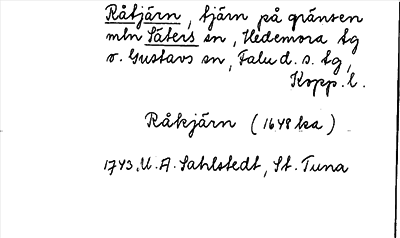 Råtjärn, tjärn på gränsen
mln Säters sn, Hedemora tg
o. Gustavs sn, Falu d. s. tg,
Kopp. l.
Råkjärn (1648 ka)
1743. U. A. Sahlstedt, St. Tuna